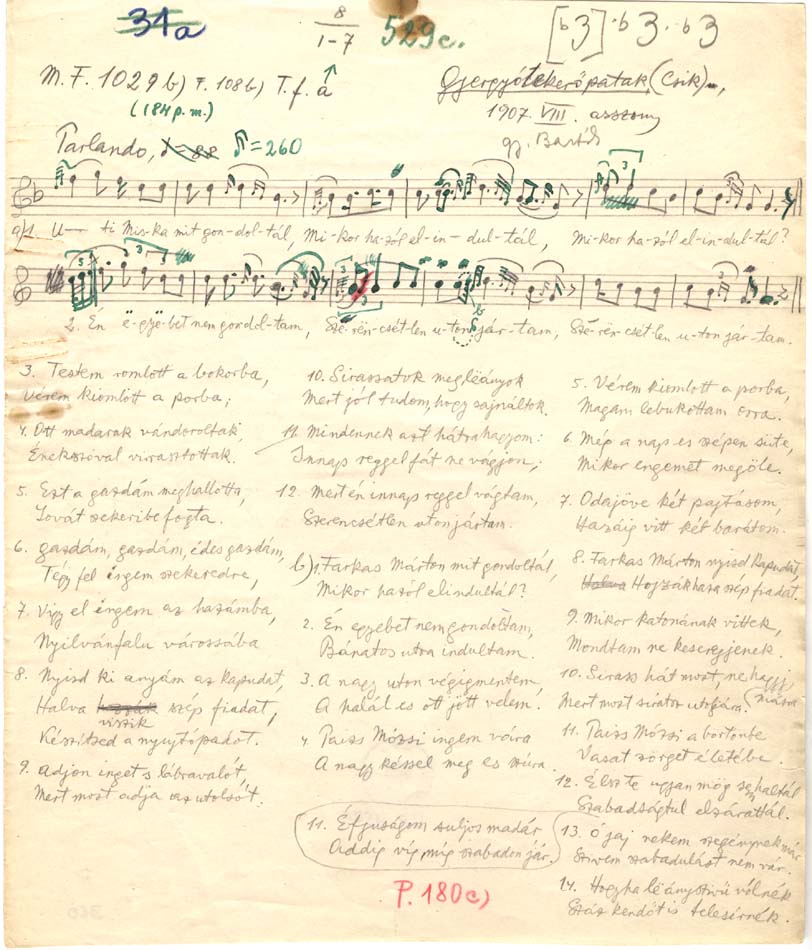 31a
8
1-7
529c.
[b3] b3. b3
M.F. 1029b) F. 108b) T.f. a
(184 p.m.)
Gyergyótekerőpatak (Csik),
1907. VIII. asszony
gy. Bartók
Parlando, ♩=88 ♪=260
a) 1. U- ti Mis-ka mit gon-dol-tál, Mi-kor ha-zól el-in-dul-tál, Mi-kor ha-zól el-in-dul-tál?
2. Én ë-gyë-bet nem gondol-tam, Szë-rën-csét-len u-ton jár-tam, Szë-rën-csét-len u-ton jár-tam.
3. Testem romlott a bokorba,
Vérem kiomlott a porba;
4. Ott madarak vándoroltak,
Énekszóval virasztottak.
5. Ezt a gazdám meghallotta,
Lovát szekeribe fogta.
6. Gazdám, gazdám, édes gazdám,
Tégy fel ingem szekeredre,
7. Vigy el ingem az hazámba,
Nyilvánfalu várossába
8. Nyisd ki anyám az kapudat,
Halva hozzák szép fiadat,
viszik
Készitsed a nyujtópadot.
9. Adjon inget s lábravalót,
Mert most adja az utolsót.
10. Sirassatok meg lëányok
Mert jól tudom, hogy sajnáltok.
11. Mindennek azt hátrahagyom:
Innap reggel fát ne vágjon;
12. Mert én innap reggel vágtam,
Szerencsétlen uton jártam.
b) 1. Farkas Márton mit gondoltál,
Mikor hazól elindultál?
2. Én egyebet nem gondoltam,
Bánatos utra indultam.
3. A nagy uton végigmentem,
A halál es ott jött velem.
4. Paizs Mózsi ingem vára
A nagy késsel meg es szúra.
5. Vérem kiomlott a porba,
Magam lebukottam orra.
6. Még a nap es szépen süte,
Mikor engemet megöle.
7. Odajöve két pajtásom,
Hazáig vitt két barátom.
8. Farkas Márton nyisd kapudat,
Halva Hozzák haza szép fiadat.
9. Mikor katonának vittek,
Mondtam ne keseregjenek.
10. Sirass hát most, ne hagyj
Mert most siratsz utojára.
11. Paizs Mózsi a börtönbe
Vasat zörget életébe.
12. Élszte ugyan mög sem haltál
Szabadságtul elzárattál.
11. Éfjuságom suljos madár
Addig víg, míg szabadon jár.
13. Ó jaj nekem szegénynek már
Szivem szabadulást nem vár.
14. Hogyha lëányszivü vólnék
Száz kendőt is telesírnék.
P. 180c)